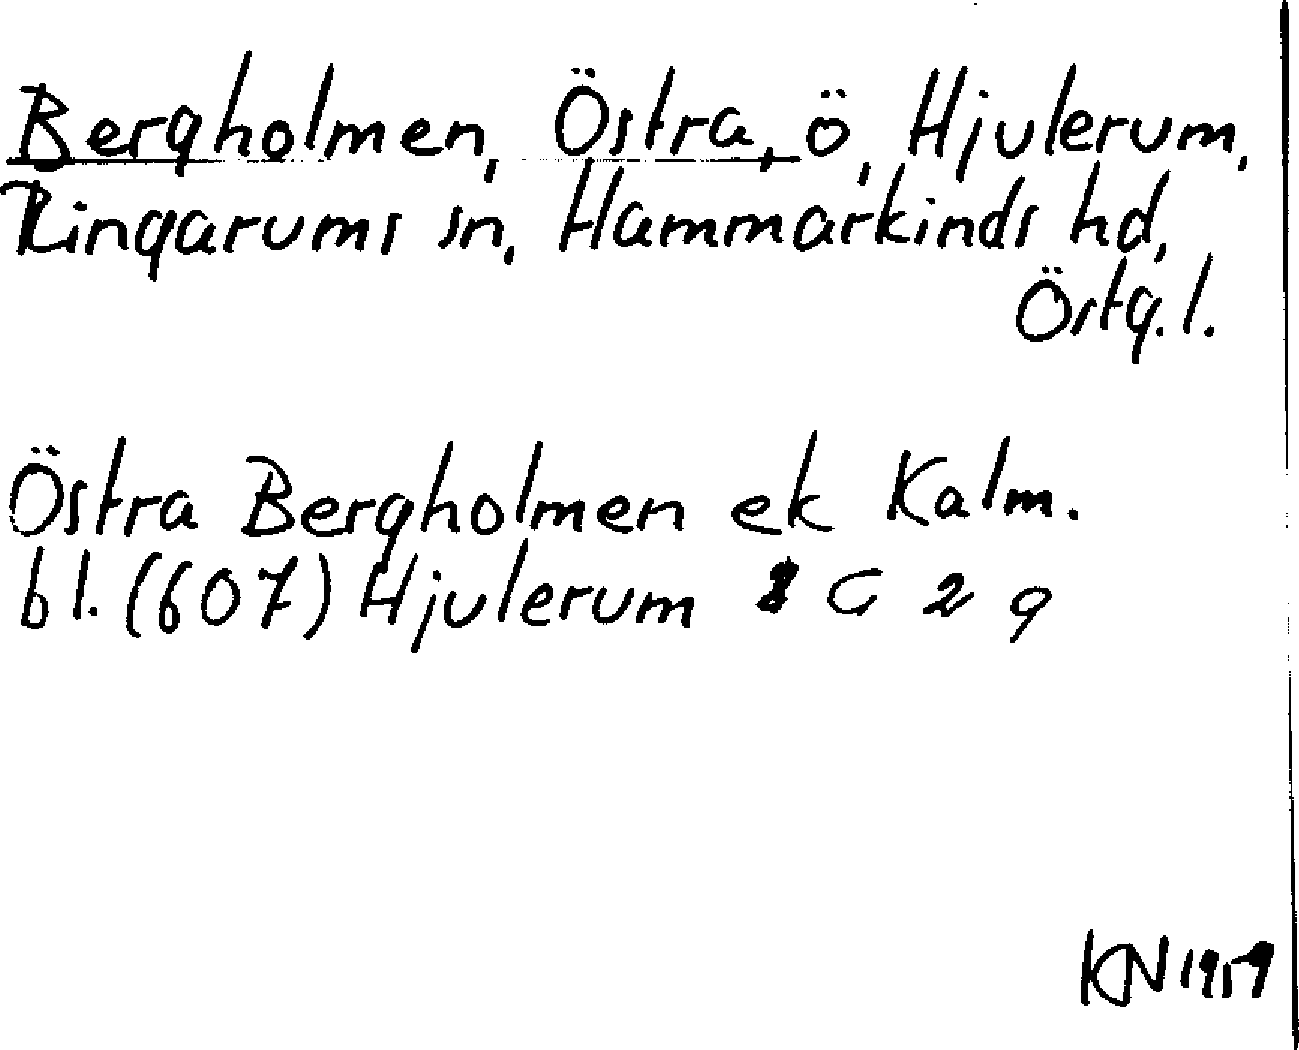 Bergholmen, Östra, ö, Hjulerum,
Ringarums sn, Hammarkinds hd,
Östg.l.
Östra Bergholmen ek Kalm.
bl. (607) Hjulerum 8 G 2 g
KN 1959